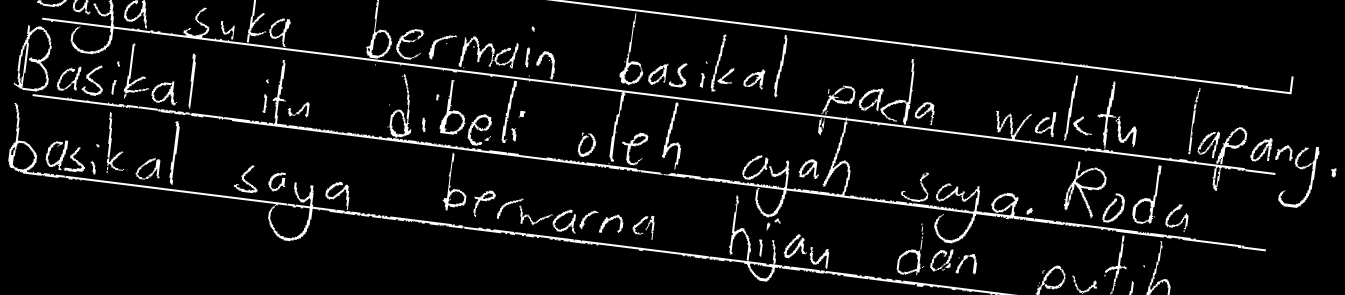 Saya suka bermain basikal pada waktu lapang.
Basikal itu dibeli oleh ayah saya. Roda
basikal saya berwarna hijau dan putih